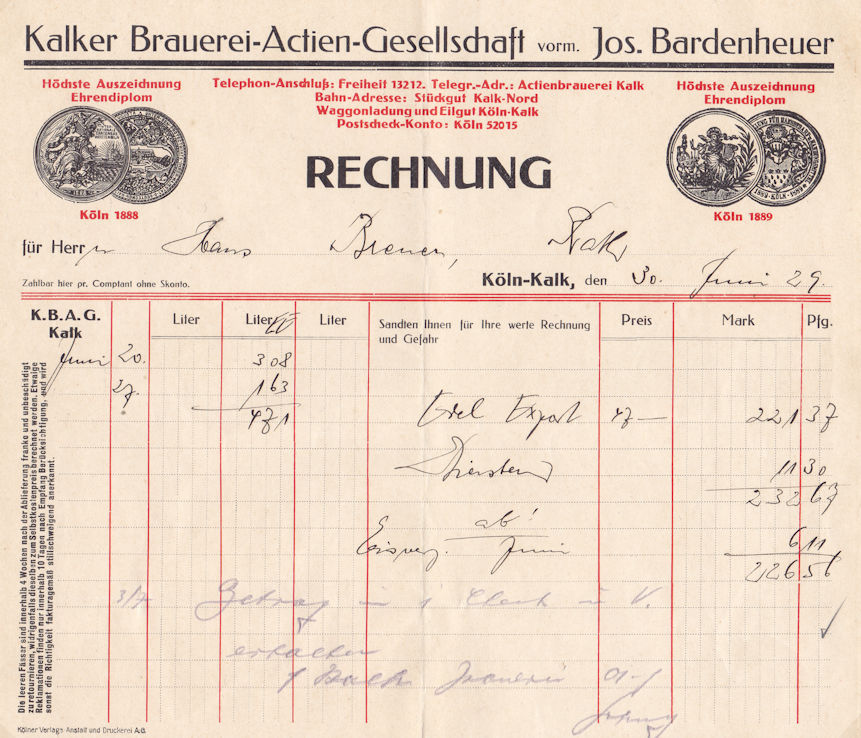 Kalker Brauerei-Actien-Gesellschaft vorm. Jos. Bardenheuer
Höchste Auszeichnung
Ehrendiplom
Köln 1888
Telephon-Anschluß: Freiheit 13212. Telegr.-Adr.: Actienbrauerei Kalk
Bahn-Adresse: Stückgut Kalk-Nord
Waggonladung und Eilgut Köln-Kalk
Postscheck-Konto: Köln 52015
Höchste Auszeichnung
Ehrendiplom
Köln 1889
RECHNUNG
für Herrn Hans Breuer, Kalk
Zahlbar hier pr. Comptant ohne Skonto.
Köln-Kalk, den 30. Juni 29.
K.B.A.G. Kalk
Liter Liter Liter
Sandten Ihnen für Ihre werte Rechnung und Gefahr
Preis Mark Pfg.
Juni 20. 308
27. 163
471 Export 47 — 221 37
11 30
232 67
ab!
Juni 6 11
226 56
3/7 Betrag in 1 V.
erhalten
Die leeren Fässer sind innerhalb 4 Wochen nach der Ablieferung franko und unbeschädigt
zu retournieren, widrigenfalls dieselben zum Selbstkostenpreis berechnet werden. Etwaige
Reklamationen finden nur innerhalb 10 Tagen nach Empfang Berücksichtigung, und wird
sonst die Richtigkeit fakturagemäß stillschweigend anerkannt.
Kölner Verlags-Anstalt und Druckerei A.G.